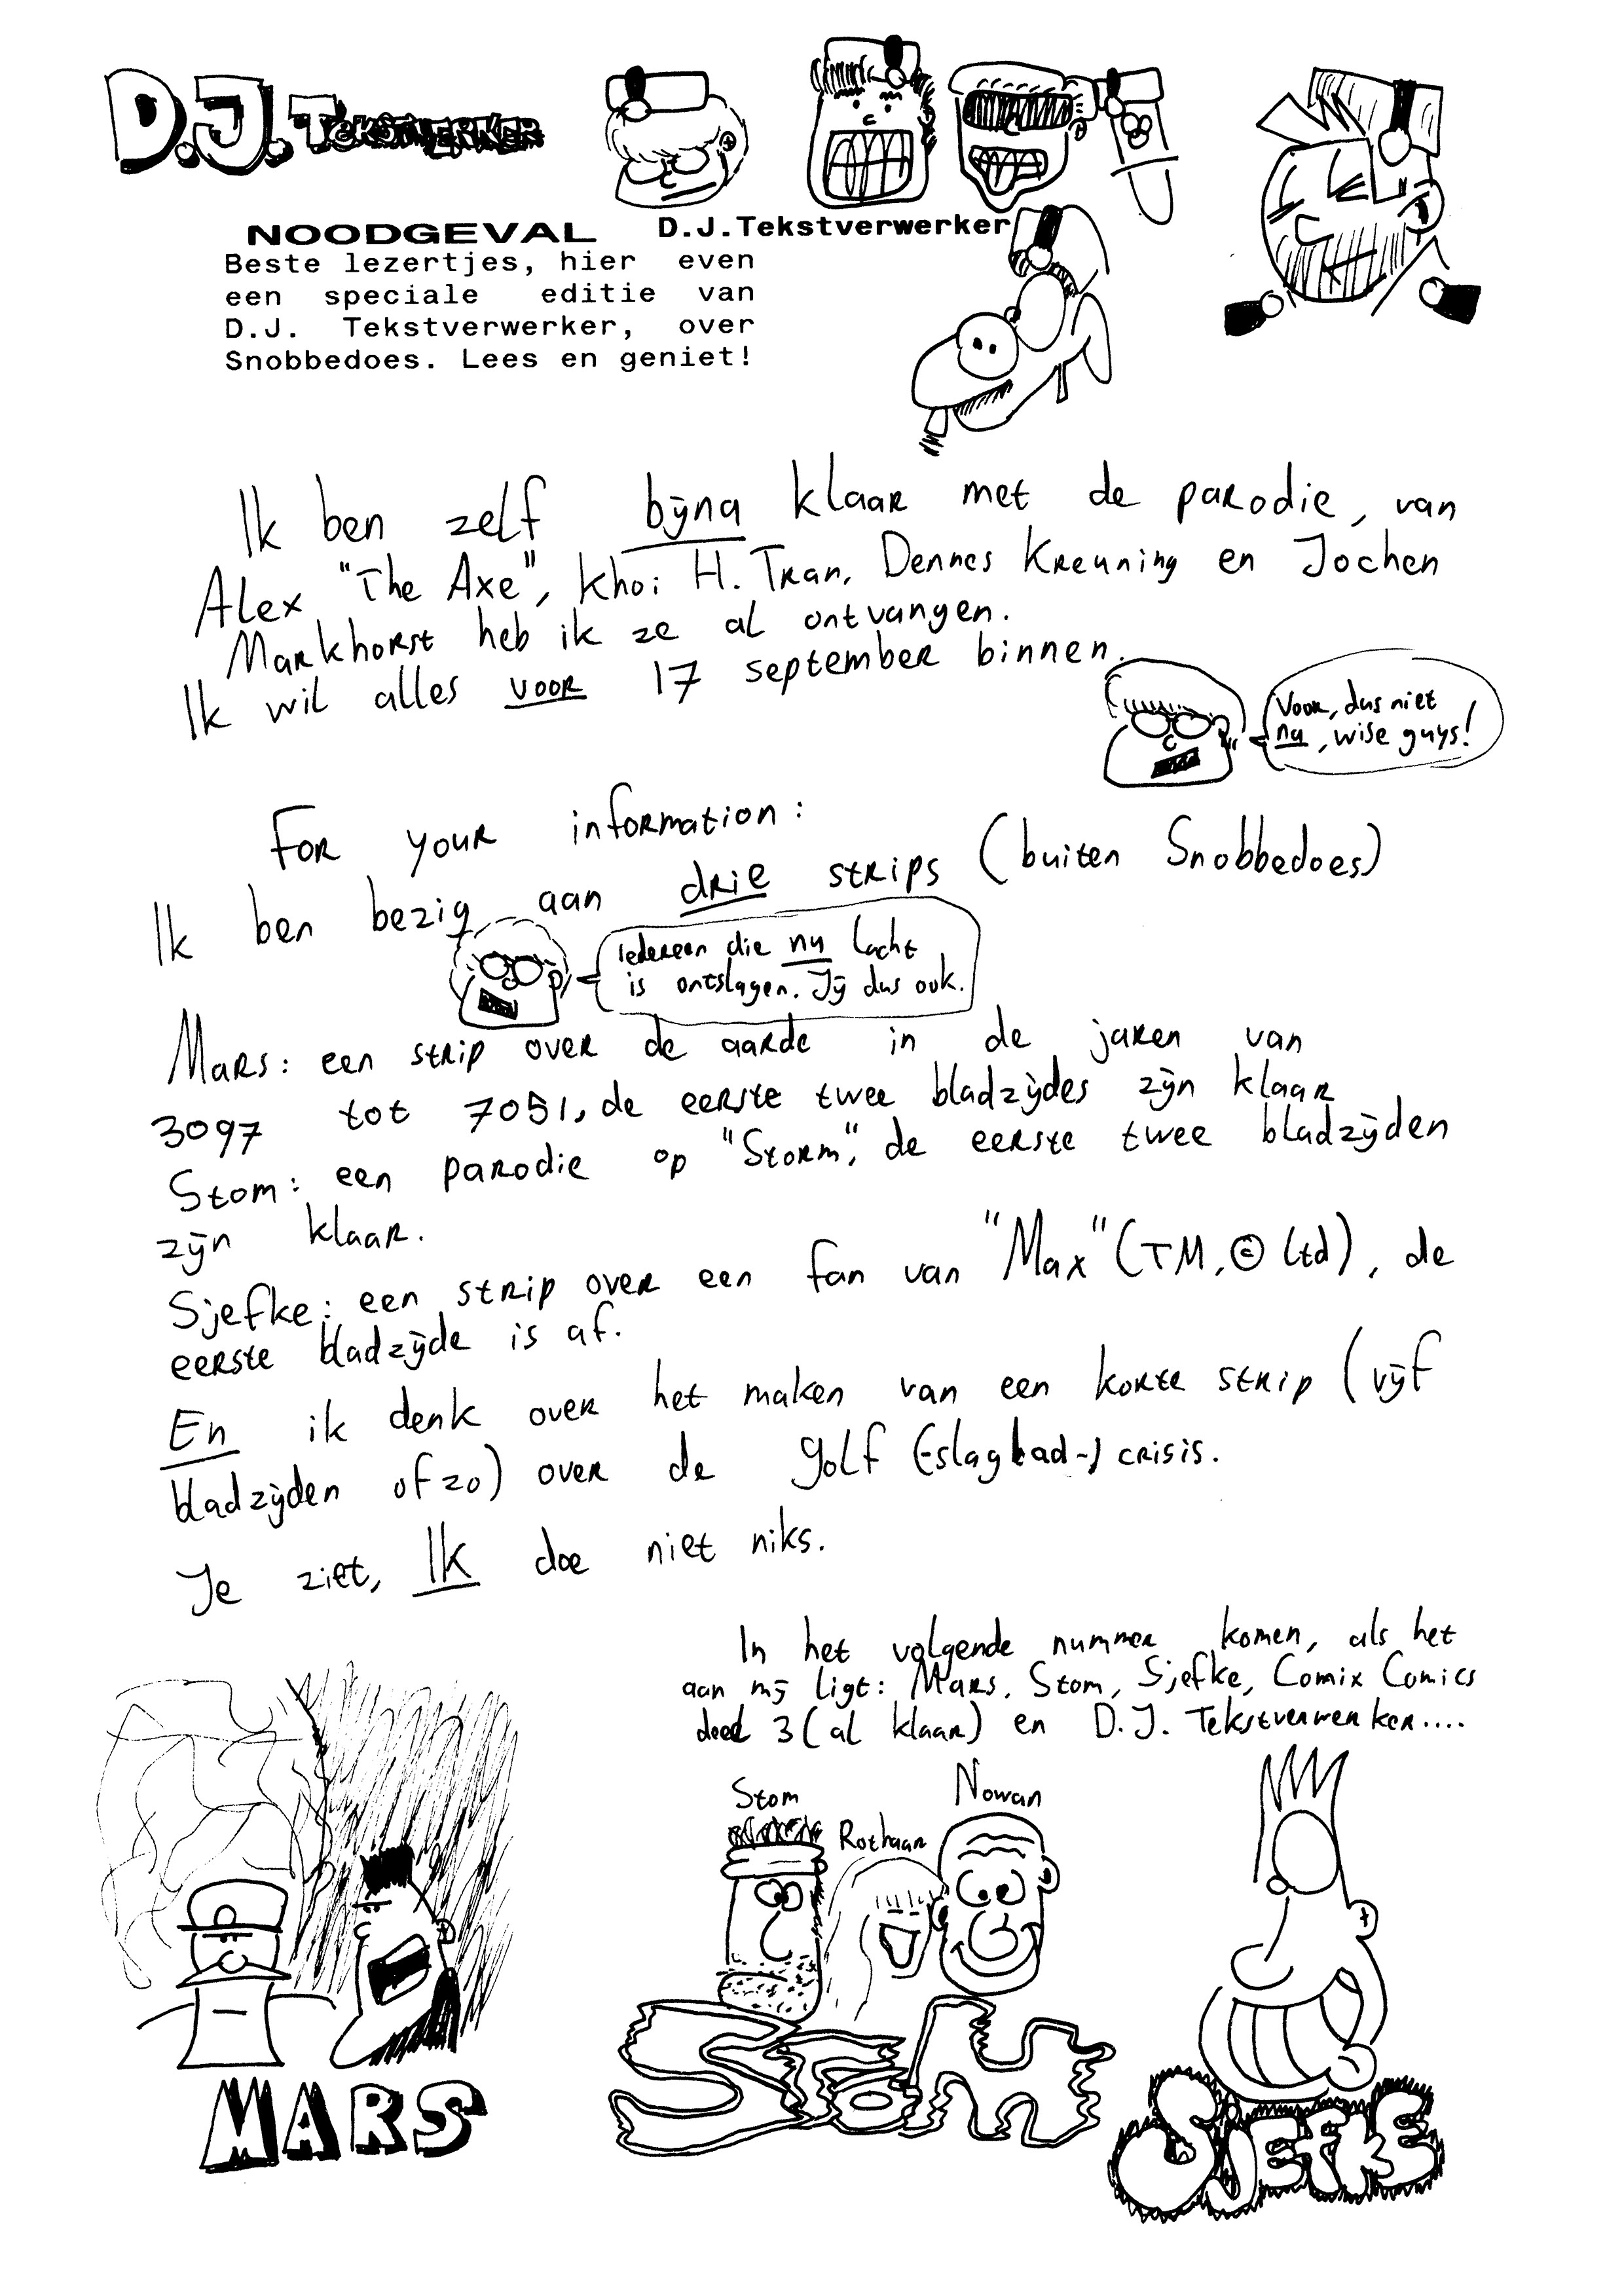 D.J. TEKSTVERWERKER
NOODGEVAL D.J.Tekstverwerker
Beste lezertjes, hier even
een speciale editie van
D.J. Tekstverwerker, over
Snobbedoes. Lees en geniet!
Ik ben zelf bijna klaar met de parodie, van
Alex "The Axe", Khoi H. Tran, Dennes Kreuning en Jochen
Markhorst heb ik ze al ontvangen.
Ik wil alles voor 17 september binnen.
Voor, dus niet
na, wise guys!
For your information:
Ik ben bezig aan drie strips (buiten Snobbedoes)
Iedereen die nu lacht
is ontslagen. Jij dus ook.
Mars: een strip over de aarde in de jaren van
3097 tot 7051, de eerste twee bladzijdes zijn klaar
Stom: een parodie op "Storm", de eerste twee bladzijden
zijn klaar.
Sjefke: een strip over een fan van "Max" (TM, © Ltd), de
eerste bladzijde is af.
En ik denk over het maken van een korte strip (vijf
bladzijden of zo) over de Golf (-slagbad-) crisis.
Je ziet, Ik doe niet niks.
In het volgende nummer komen, als het
aan mij ligt: Mars, Stom, Sjefke, Comix Comics
deel 3 (al klaar) en D.J. Tekstverwerker....
Stom Rothaar Nowan
MARS
STOM
SJEFKE